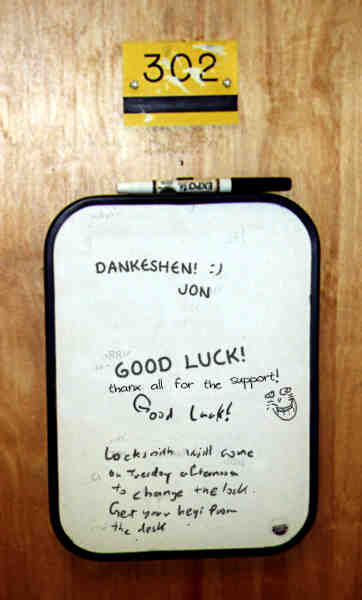 302
EXPO
DANKESHEN! :)
JON
GOOD LUCK!
thanx all for the support!
Good Luck!
Locksmith will come
on Tuesday afternoon
to change the lock.
Get your keys from
the desk